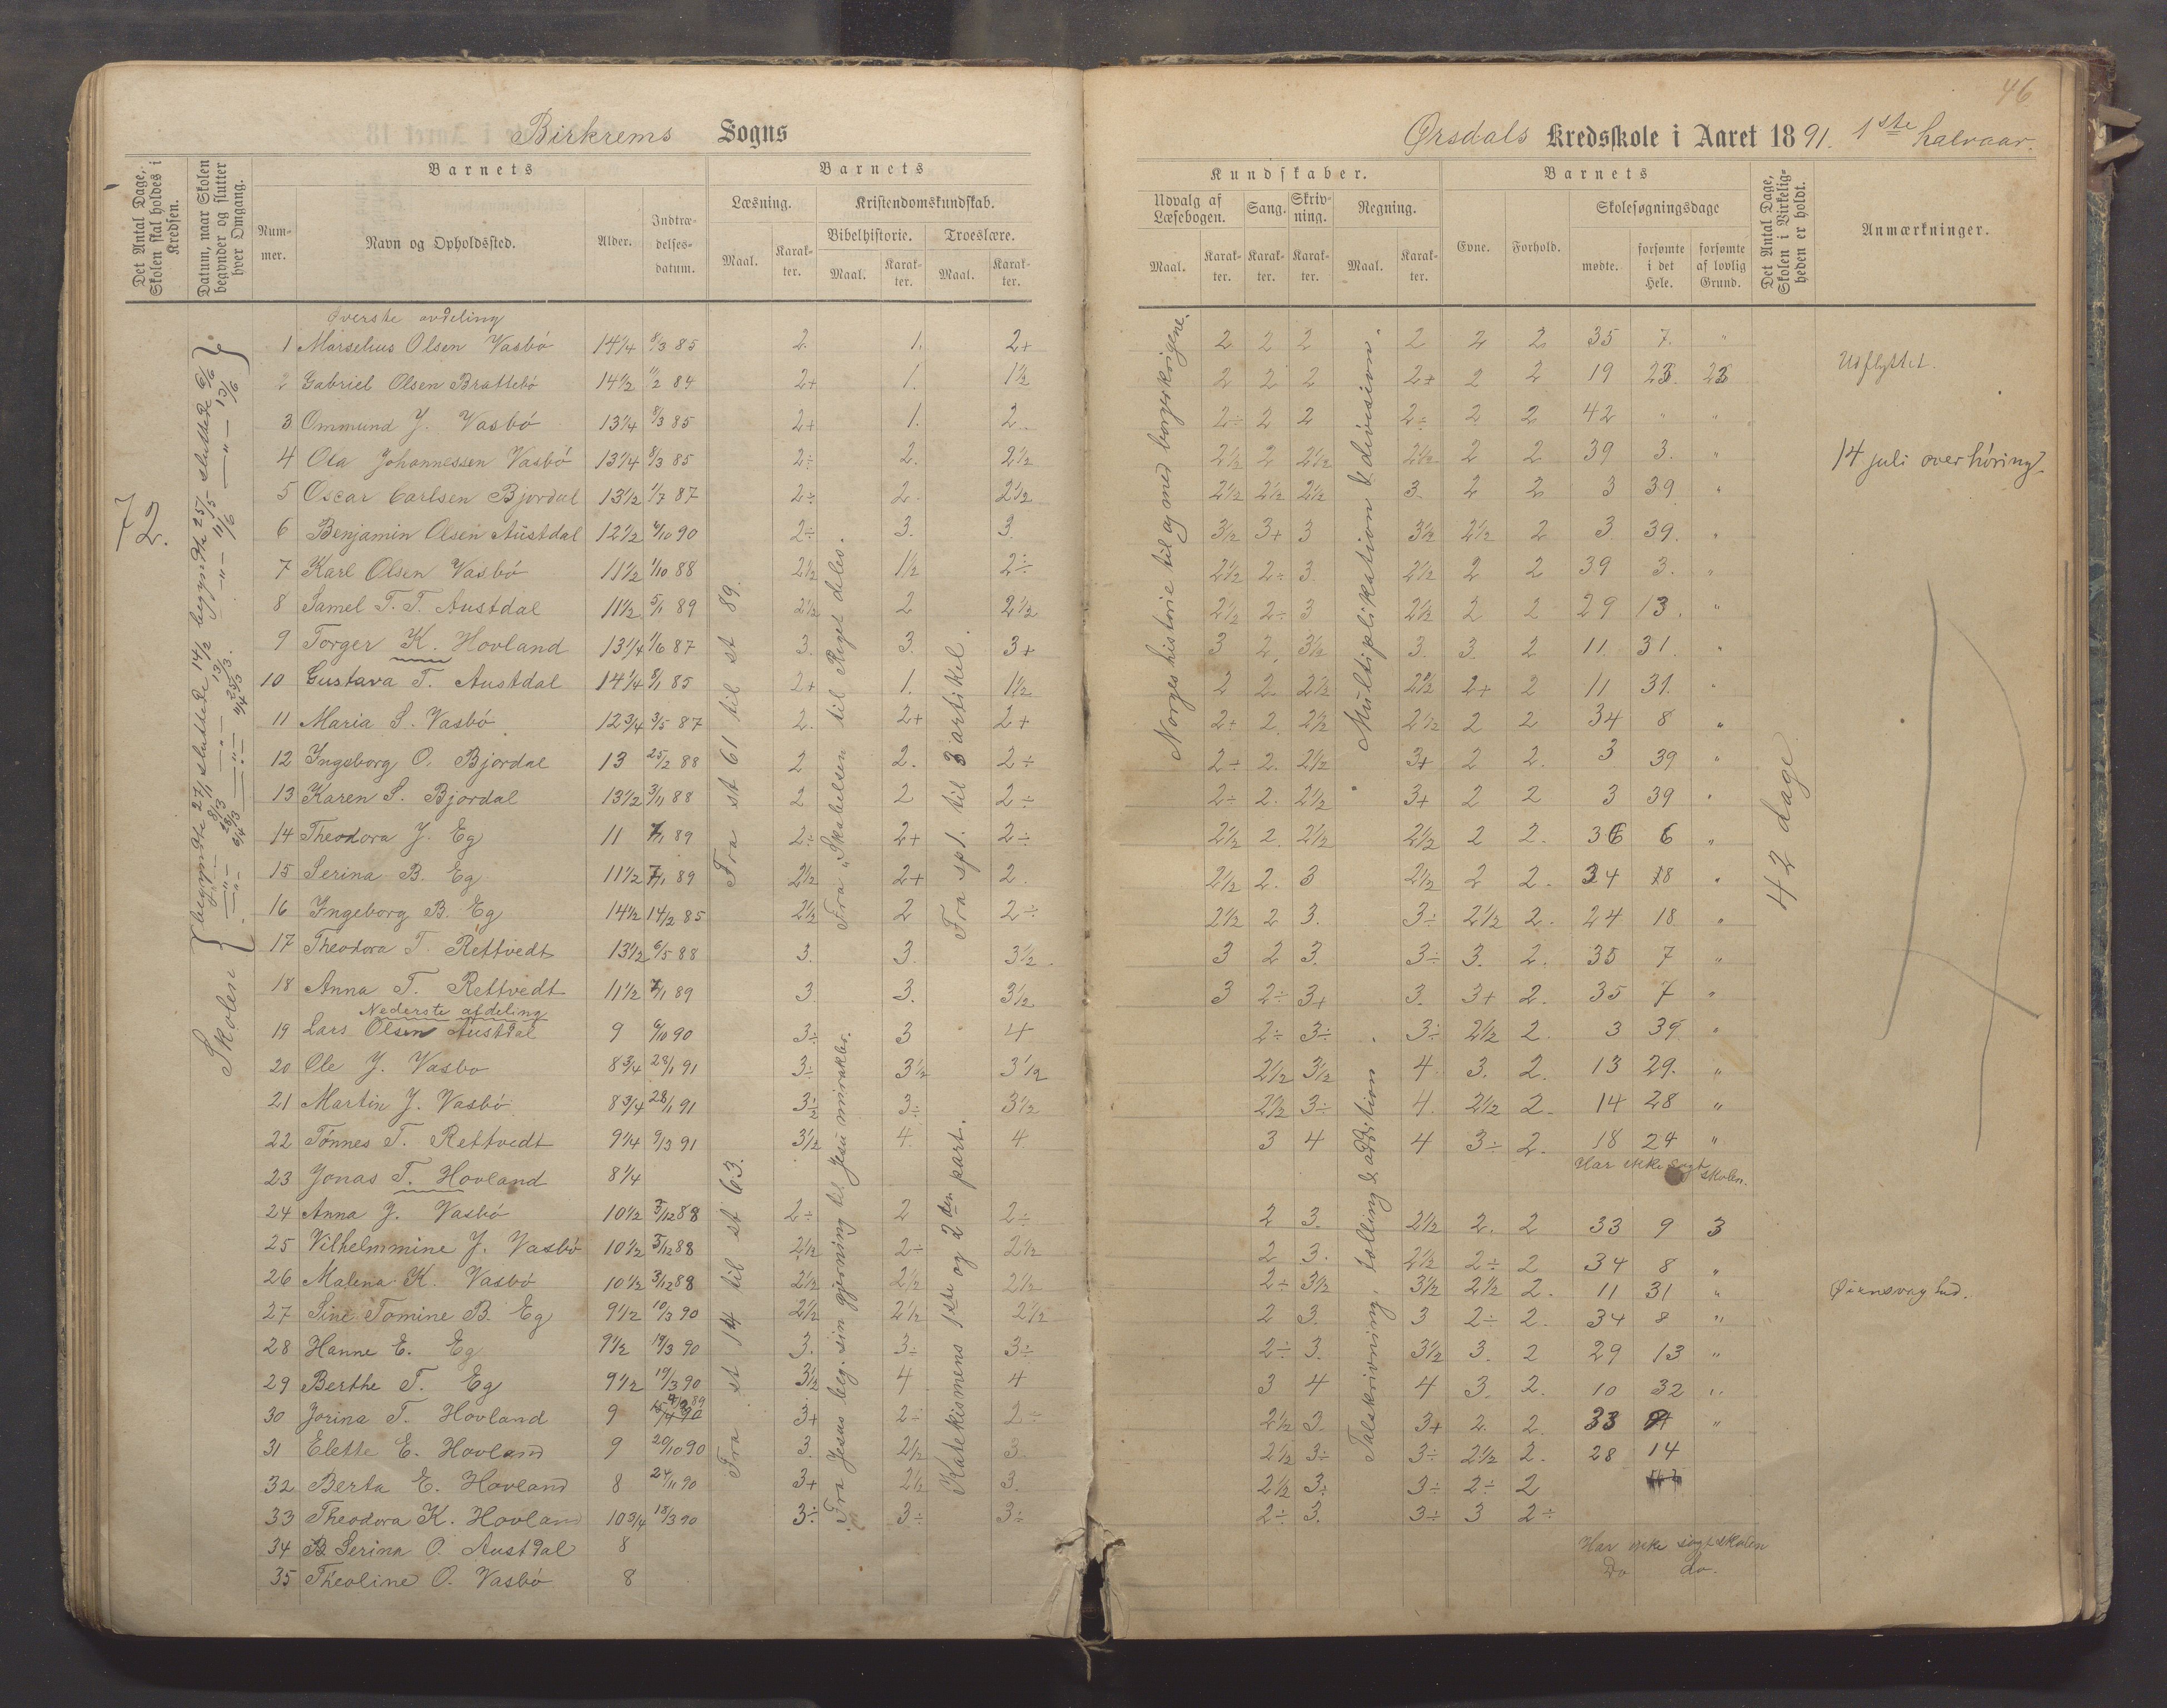 46
Birkrems Sogns
Ørsdals Kredsskole i Aaret 1891. 1ste halvaar.
Det Antal Dage, Skolen skal holdes i Kredsen.
Datum, naar Skolen begynder og slutter hver Omgang.
Barnets
Nummer.
Navn og Opholdssted.
Alder.
Indtrædelsesdatum.
Barnets
Læsning.
Maal.
Karakter.
Kristendomskundskab.
Bibelhistorie.
Maal.
Karakter.
Troeslære.
Maal.
Karakter.
Kundskaber.
Udvalg af Læsebogen.
Maal.
Karakter.
Sang.
Karakter.
Skrivning.
Karakter.
Regning.
Maal.
Karakter.
Barnets
Evne.
Forhold.
Skolesøgningsdage
mødte.
forsømte i det Hele.
forsømte af lovlig Grund.
Det Antal Dage, Skolen i Virkeligheden er holdt.
Anmærkninger.
72.
Skolen
Øverste avdeling
1 Marselius Olsen Vasbö 14 1/4 8/3 85 2. 1. 2+ 2 2 2 2 2 2 35 7. "
2 Gabriel Olsen Brattebö 14 1/2 11/2 84 2+ 1. 1 1/2 2 2 2 2+ 2 2 19 23. 23 Udflyttet.
3 Ommund J. Vasbö 13 1/4 8/3 85 2+ 1. 2 2÷ 2 2 2÷ 2 2 42 " "
4 Ola Johannessen Vasbö 13 1/4 8/3 85 2÷ 2. 2 1/2 2 1/2 2 2 1/2 2 1/2 2 2 39 3. " 14 juli overhöring.
5 Oscar Carlsen Bjordal 13 1/2 1/7 87 2÷ 2. 2 1/2 2 1/2 2 1/2 2 1/2 3. 2 2 3 39 "
6 Benjamin Olsen Austdal 12 1/2 6/10 90 2÷ 3. 3. 3 1/2 3+ 3 3 1/2 2 1/2 2 3 39. "
7 Karl Olsen Vasbö 11 1/2 1/10 88 2 1/2 1 1/2 2÷ 2 1/2 2÷ 3 2 1/2 2 2 39 3. "
8 Samel T. T. Austdal 11 1/2 5/1 89 2 1/2 2 2 1/2 2 1/2 2÷ 3 2 1/2 2 2 29 13. "
9 Torger K. Hovland 13 1/4 1/6 87 3. 3. 3+ 3 2. 3 1/2 3. 3. 2 11. 31. "
10 Gustava T. Austdal 14 1/4 8/1 85 2+ 1. 1 1/2 2 2 2 1/2 2 1/2 2+ 2 11 31. "
11 Maria S. Vasbö 12 3/4 3/5 87 2. 2+ 2+ 2+ 2. 2 1/2 2 1/2 2 2 34 8 "
12 Ingeborg O. Bjordal 13 25/2 88 2 2. 2÷ 2÷ 2. 2 1/2 3+ 2 2. 3 39 "
13 Karen S. Bjordal 13 1/2 3/11 88 2 2 2÷ 2÷ 2. 2 1/2 3+ 2 2 3 39 "
14 Theodora J. Eg 11 7/1 89 2÷ 2+ 2÷ 2 1/2 2. 2 1/2 2 1/2 2 2. 36 6 "
15 Serina B. Eg 11 1/2 7/1 89 2 1/2 2+ 2. 2 1/2 2. 3 2 1/2 2 2. 34 18 "
16 Ingeborg B. Eg 14 1/2 14/2 85 2 1/2 2 2÷ 2 1/2 2 3. 3÷ 2 1/2 2. 24 18 "
17 Theodora T. Rettvedt 13 1/2 6/5 88 3. 3. 3 1/2 3 2 3. 3÷ 3. 2. 35 7 "
18 Anna T. Rettvedt 11 1/2 7/1 89 3 3. 3 1/2 3 2÷ 3+ 3. 3+ 2. 35 7 "
Nederste afdeling
19 Lars Olsen Austdal 9 6/10 90 3÷ 3 4 2÷ 3÷ 3÷ 2 1/2 2. 3 39 "
20 Ole J. Vasbo 8 3/4 28/1 91 3÷ 3 1/2 3 1/2 2 1/2 3 1/2 4 3. 2. 13 29. "
21 Martin J. Vasbö 8 3/4 28/1 91 3÷ 3÷ 3 1/2 2 1/2 3÷ 4. 2 1/2 2. 14 28 "
22 Tönnes T. Rettvedt 9 1/4 9/3 91 3 1/2 4. 4 3 4 4 3÷ 2. 18 24 "
23 Jonas T. Hovland 8 1/4 Har ikke søgt skolen.
24 Anna J. Vasbö 10 1/2 3/12 88 2÷ 2 2÷ 2 3. 2 1/2 2. 2 33 9 3
25 Vilhelmmine J. Vasbö 10 1/2 3/12 88 2 1/2 2÷ 2 1/2 2 3. 2 1/2 2÷ 2 34 8 "
26 Malena K. Vasbö 10 1/2 3/12 88 2 1/2 2 1/2 2 1/2 2÷ 3 1/2 3 1/2 2 1/2 2. 11 31 " Øiensvaghed.
27 Sine Tomine B. Eg 9 1/2 10/3 90 2 1/2 2 1/2 2 1/2 2 3. 3 2÷ 2. 34 8 "
28 Hanne E. Eg 9 1/2 19/3 90 3. 3÷ 3÷ 2÷ 3. 3 1/2 3. 2 29 13 "
29 Berthe T. Eg 9 1/2 19/3 90 3 1/2 4 4 3 4 4 3. 2. 10 32 "
30 Jorina T. Hovland 9 3+ 2÷ 2÷ 2 1/2 3. 3+ 2. 2. 33 9 "
31 Elette E. Hovland 9 20/10 90 3. 2 1/2 3. 2 1/2 3÷ 3÷ 2 1/2 2. 28 14
32 Berta E. Hovland 8 24/11 90 3+ 2 1/2 3. 2 1/2 3÷ 3÷ 2÷ 2
33 Theodora K. Hovland 10 3/4 18/3 90 3÷ 3÷ 3÷ 2÷ 3. 3÷ 3 2÷
34 B Serina O. Austdal 8 Har ikke søgt skolen
35 Théoline O. Vasbö 8 Do do.
Fra st 61 til st 89.
Fra "Skabelsen til Riget deles.
Fra sp 1. til 3 artikel.
Norges historie til og med borgerkrigene.
Multiplikation & division.
Fra st 14 til st 63.
Fra Jesus beg. sin gjerning til Jesu mirakler.
Katekismens 1ste og 2den part.
Talskrivning, tælling & addition.
42 dage